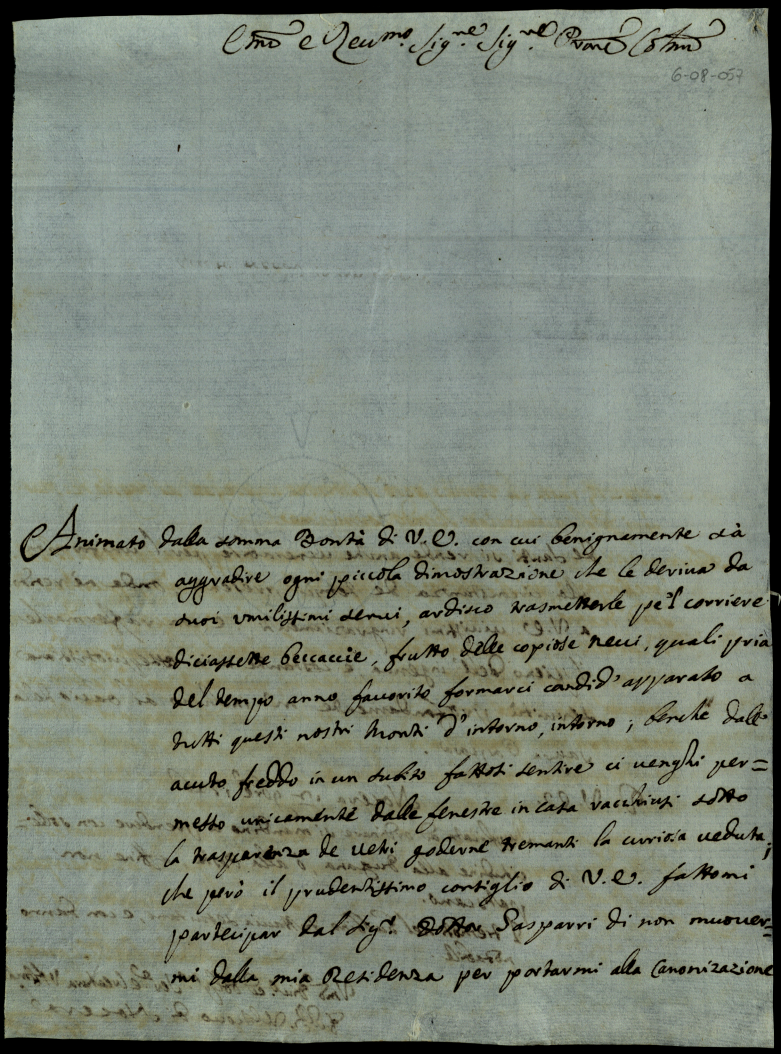 Emo e Reumo. Sigre. Sigre. Prone Colmo
6-08-057
Animato dalla somma Bontà di V. E. con cui benignamente sà
aggradire ogni piccola dimostrazione che le deriua da
suoi umilissimi serui, ardisco trasmetterle pe'l corriere
diciassette beccaccie, frutto delle copiose neui, quali pria
del tempo anno fauorito formarci candid'apparato a
tutti questi nostri Monti d'intorno, intorno; benche dall'
acuto freddo in un subito fattosi sentire ci uenghi per=
messo unicamente dalle fenestre in casa racchiusi sotto
la trasparenza de uetri goderne tremanti la curiosa ueduta;
che però il prudentissimo consiglio di V. E. fattomi
partecipar dal Sigr. Dottor Gasparri di non muouer=
mi dalla mia Residenza per portarmi alla Canonizazione